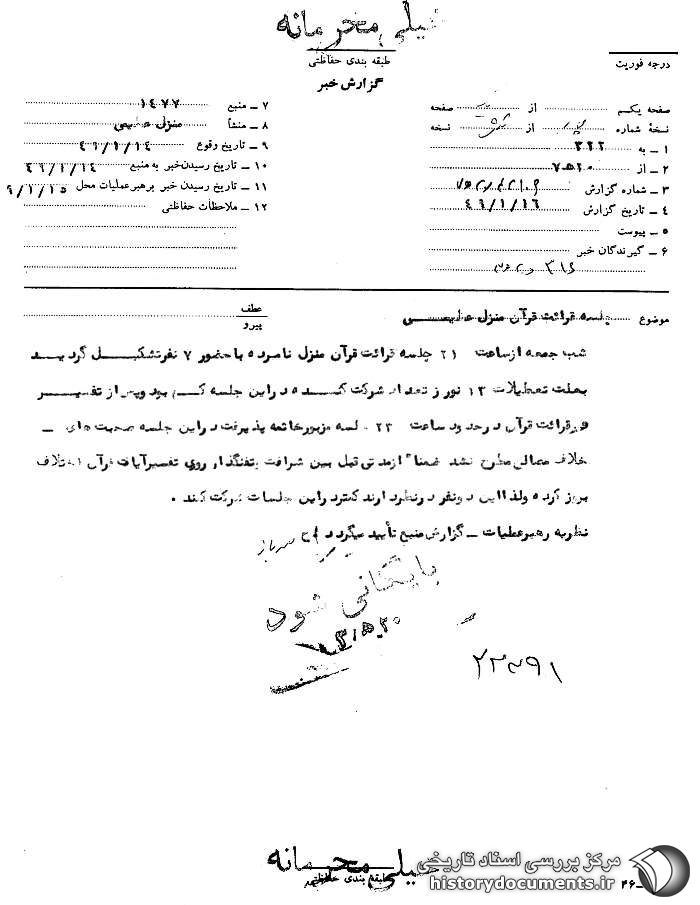 خیلی محرمانه
طبقه بندی حفاظتی
درجه فوریت
گزارش خبر
صفحه یکم از صفحه
نسخهٔ شماره از نسخه
۱ ـ به ۳۲۲
۲ ـ از
۳ ـ شماره گزارش
۴ ـ تاریخ گزارش ۴۶/۱/۱۶
۵ ـ پیوست
۶ ـ گیرندگان خبر
۳۱۶
۷ ـ منبع ۱۴۷۷
۸ ـ منشأ منزل
۹ ـ تاریخ وقوع ۴۶/۱/۱۴
۱۰ ـ تاریخ رسیدن خبر به منبع ۴۶/۱/۱۴
۱۱ ـ تاریخ رسیدن خبر برهبر عملیات محل ۶/۱/۱۵
۱۲ ـ ملاحظات حفاظتی
موضوع جلسه قرائت قرآن منزل
عطف
پیرو
شب جمعه از ساعت ۲۱ جلسه قرائت قرآن منزل نامبرده با حضور ۷ نفر تشکیل گردید
بعلت تعطیلات ۱۳ نوروز تعداد شرکت کننده در این جلسه کم بود و پس از تفسیر
و قرائت قرآن در حدود ساعت ۲۳ جلسه مزبور خاتمه پذیرفت در این جلسه صحبت های ـ
خلاف مصالحی مطرح نشد ضمناً از مدتی قبل بین شرافت و تفنگدار روی تفسیر آیات قرآن اختلاف
بروز کرده ولذا این دو نفر در نظر دارند کمتر در این جلسات شرکت کنند .
نظریه رهبر عملیات ـ گزارش منبع تأیید میگردد
بایگانی شود
۲۲۳۹۱
خیلی محرمانه
طبقه بندی حفاظتی
۴۶ـ
مرکز بررسی اسناد تاریخی
historydocuments.ir